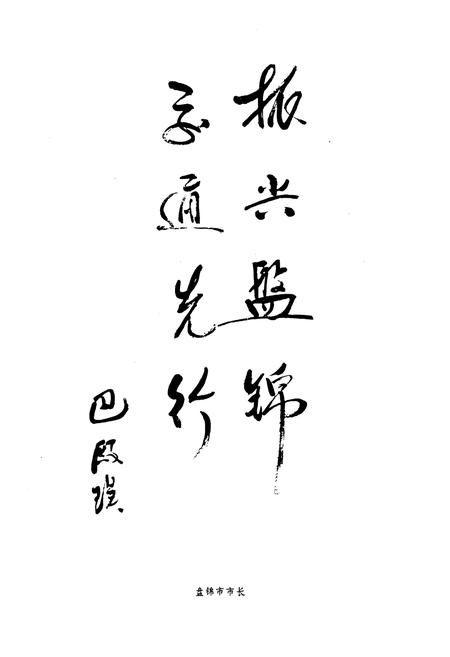 振兴盘锦
交通先行
巴殿璞
盘锦市市长